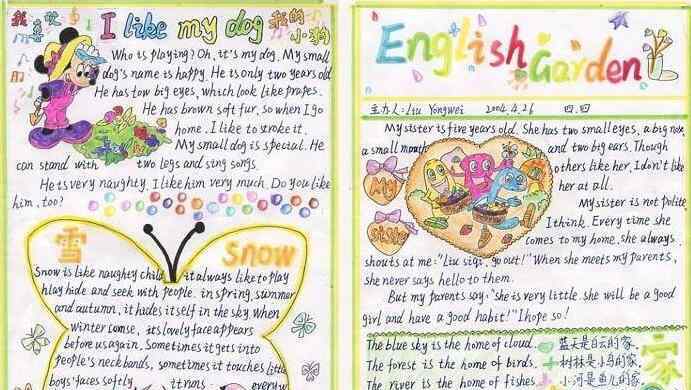 我喜欢 I like my dog 我的小狗
Who is playing? Oh, it's my dog. My small
dog's name is happy. He is only two years old
He has tow big eyes, which look like prapes.
He has brown soft fur, so when I go
home, I like to stroke it.
My small dog is special. He
can stand with two legs and sing songs.
He is very naughty. I like him very much. Do you like
him, too?
雪 Snow
Snow is like naughty child it always like to play
hlay hide and seek with people. in spring, summer
and autumn, it hides itself in the sky. when
winter comse, its lovely face appears
before us again. Sometimes it gets into
people's neck bands, sometimes it touches little
boys' faces softly, it runs everyw
English Garden
主办人: Liu Yongwei 2004.4.26 四.四
My sister is five years old. She has two small eyes, a big nose,
a small mouth and two big ears. Though
others like her, I don't like
her at all.
My
Sister
My sister is not polite
I think. Every time she
comes to my home, she always
shouts at me: "Liu siqi, go out!" When she meets my parents,
she never says hello to them.
But my parents say: "she is very little. she will be a good
girl and have a good habit!" I hope so!
The blue sky is the home of cloud. 蓝天是白云的家. 家
The forest is the home of birds. 树林是小鸟的家.
The river is the home of fishes. 小河是鱼儿的家.